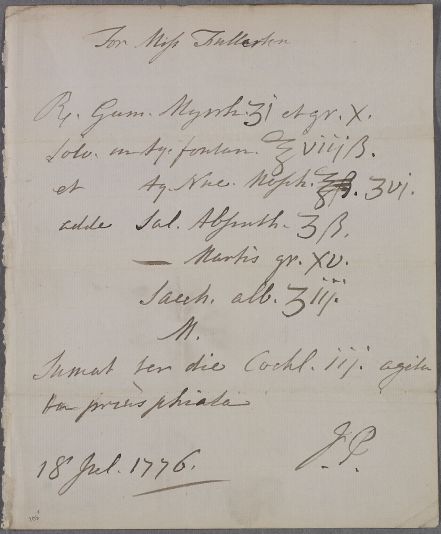 For Miss Fullerton
℞. Gum. Myrrh. ʒi et gr. x.
Solv. in Aq. fontan. ℥viijß.
et Aq. Nuc. Mosch. ʒvi.
adde Sal. Absinth. ʒß.
— Martis gr. xv.
Sacch. alb. ʒiij.
M.
Sumat ter die Cochl. iij. agita
ta prius phiala
18 Jul. 1776.
J. P.